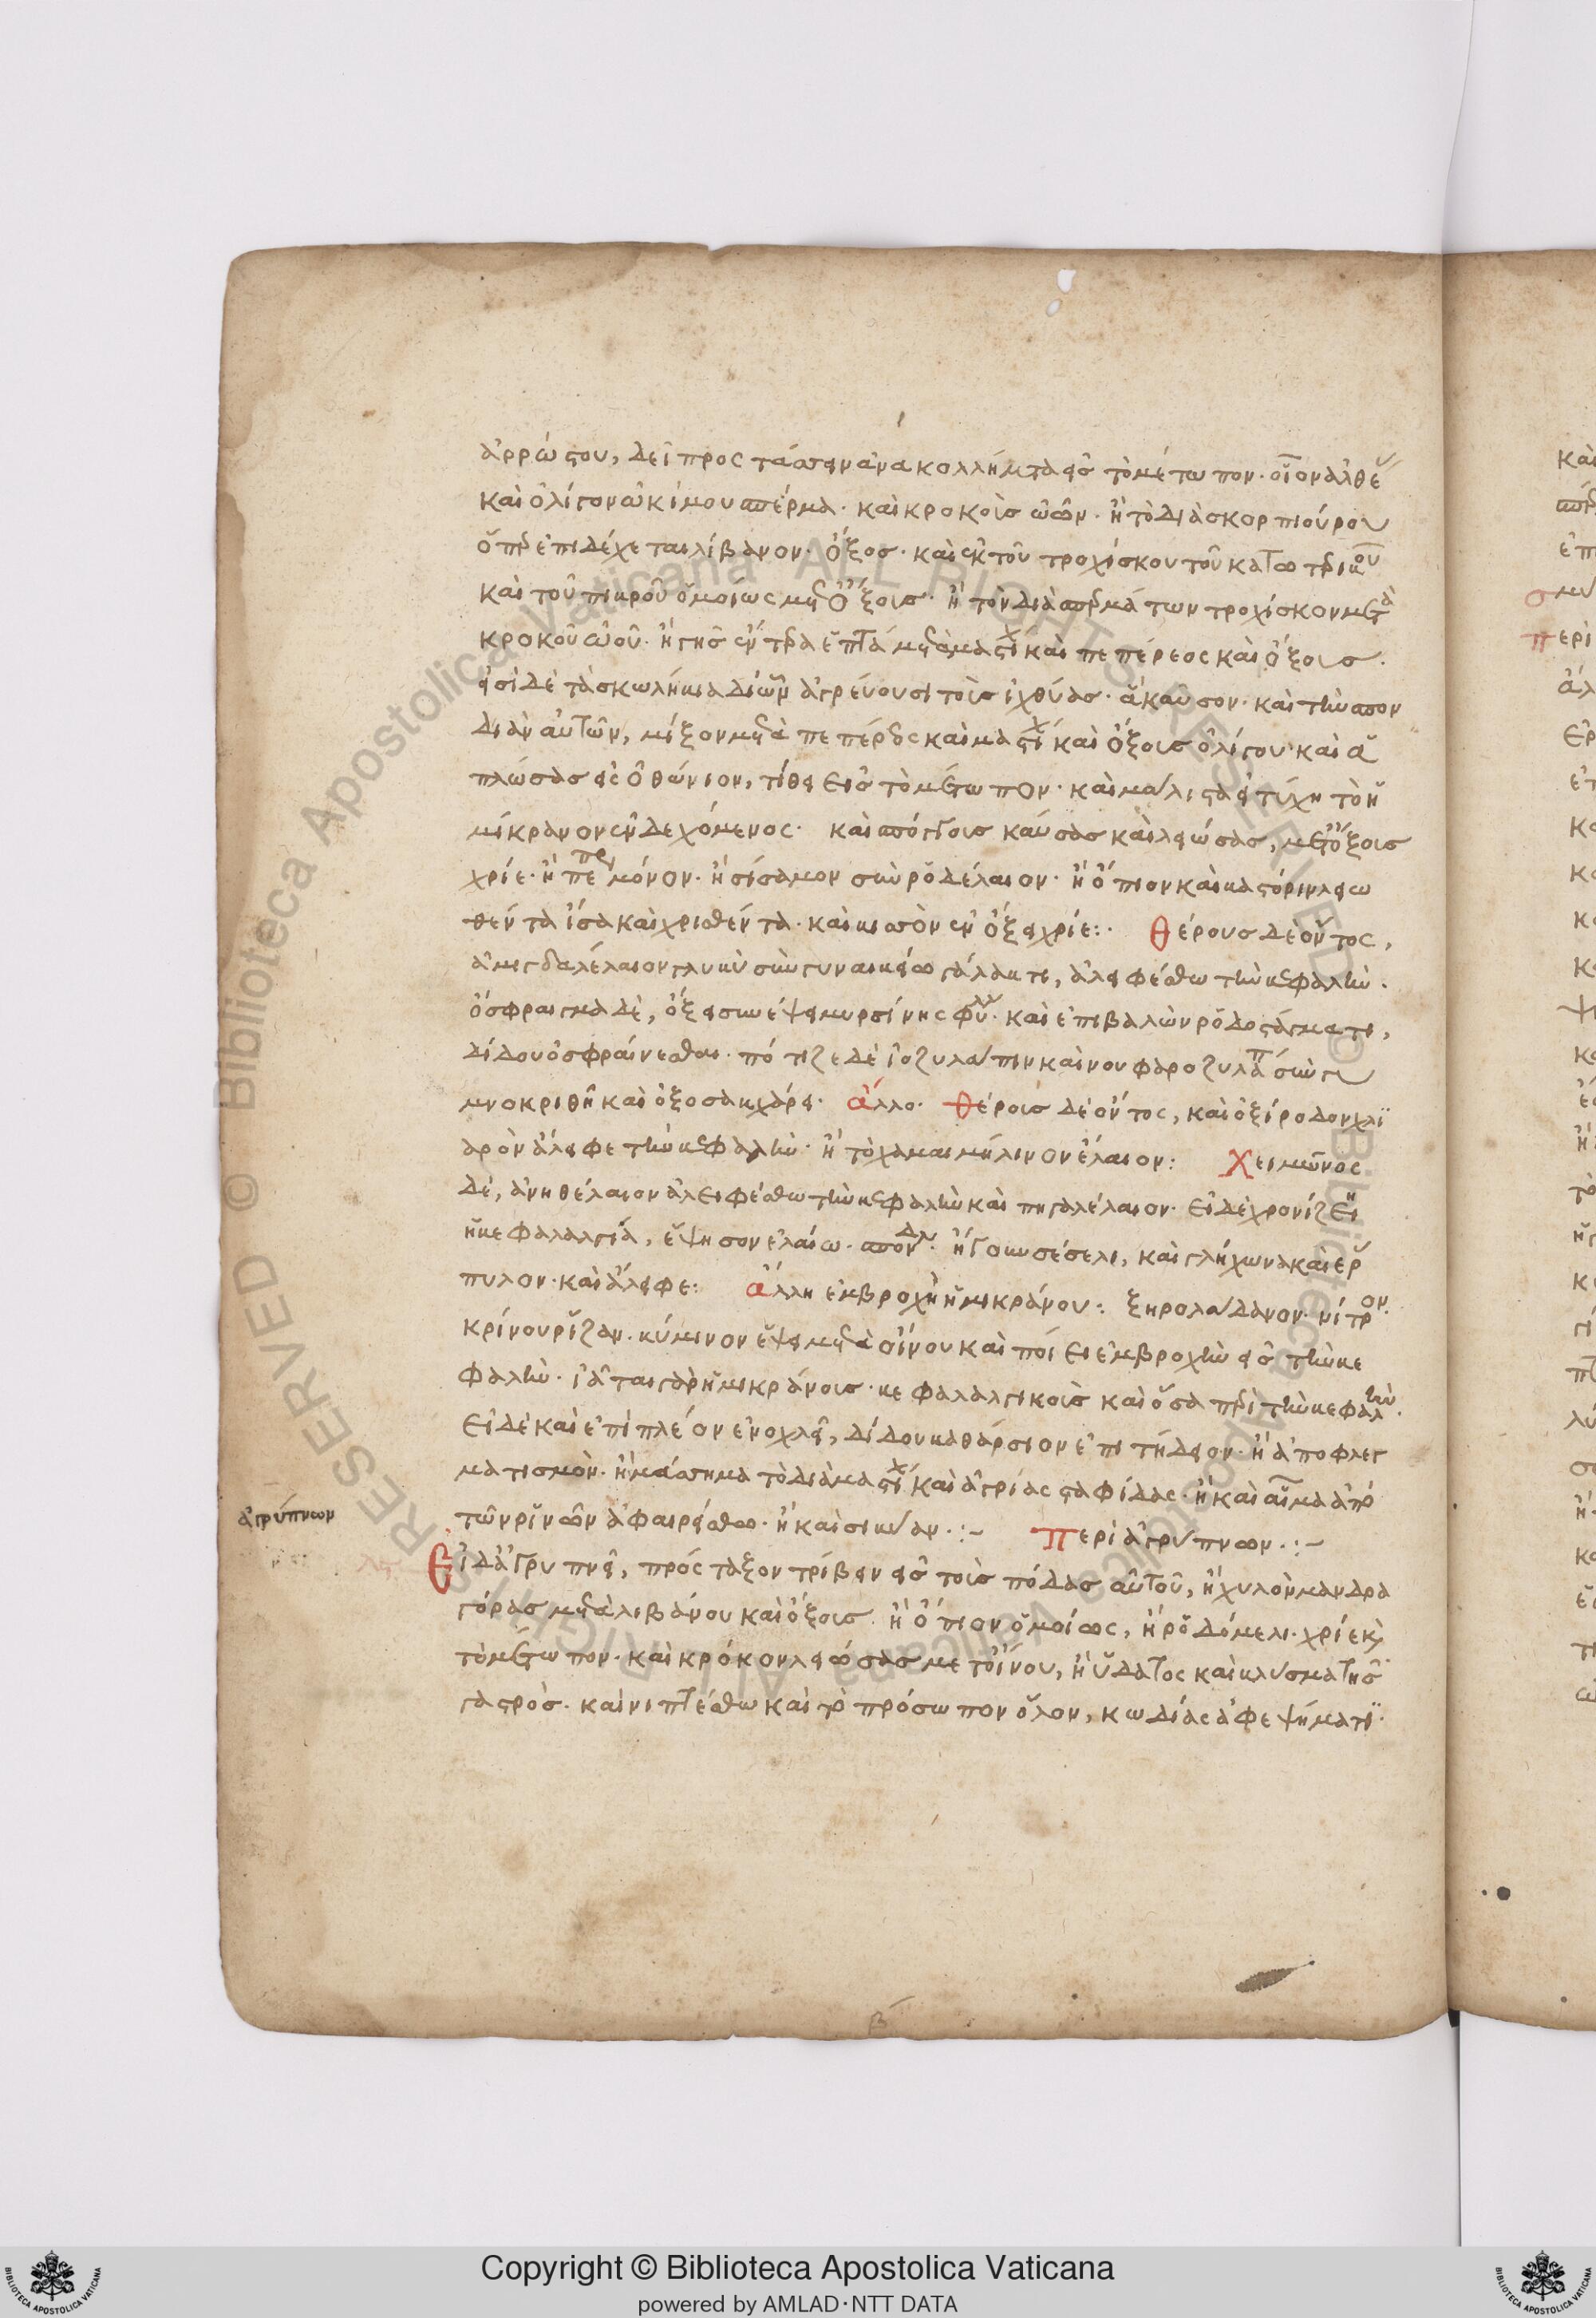 ἀρρώστου, δεῖ πρὸς ταύτην ἀνακόλλημα εἰς τὸ μέτωπον· οἷον
καὶ ὀλίγον ὠκίμου σπέρμα· καὶ κροκοὺς ὠῶν· ἢ τὸ διὰ σκορπιούρου
ὅπερ ἐπιδέχεται λίβανον· ὄξος· καὶ ἐκ τοῦ τροχίσκου τοῦ
καὶ τοῦ πικροῦ ὁμοίως μετὰ ὄξους· ἢ τὸν διὰ σπερμάτων τροχίσκον μετὰ
κροκοῦ ὠοῦ· ἢ γῆς ἔντερα ἑπτά μετὰ μαστίχ καὶ πεπέρεος καὶ ὄξους·
εἰσὶ δὲ τὰ σκωλήκια δι ὧν ἀγρεύουσι τοὺς ἰχθύας· ἃ καῦσον· καὶ τὴν σπον
διὰν αὐτῶν, μίξον μετὰ πεπέρεος καὶ μαστίχ καὶ ὄξους ὀλίγου καὶ ἁ
πλώσας εἰς ὀθόνιον, τίθει εἰς τὸ μέτωπον· καὶ μάλιστα εἰ τύχη τὸ ἡ
μίκρανον ἐνδεχόμενος· καὶ σπόγγους καύσας καὶ λειώσας, μετ ὄξους
χρίε· ἢ πέπερ μόνον· ἢ σίσαμον σὺν ῥοδέλαιον· ἢ ὄπιον καὶ καστόριν λειω
θέντα ἴσα καὶ χρισθέντα· καὶ κισσὸν ἐν ὄξει χρίε:· Θέρους δὲ ὄντος,
ἀμιγδαλέλαιον γλυκὺ σὺν γυναικείω γάλακτι, ἀλειφέσθω τὴν κεφαλὴν·
ὄσφραιγμα δὲ, ὄξει συνέψει μυρσίνης φύλλ· καὶ ἐπιβαλὼν ῥοδοστάγματι,
δίδου ὀσφραίνεσθαι· πότιζε δὲ ἰοζυλάπιν καὶ νουφαροζυλάπ σὺν γυ
μνοκριθῆ καὶ ὀξοσακχάρει· ἄλλο· θέρους δὲ ὄντος, καὶ ὀξίροδον χλι
αρὸν ἄλειφε τὴν κεφαλὴν· ἢ τὸ χαμαιμήλινον ἔλαιον: Χειμῶνος
δὲ, ἀνηθέλαιον ἀλειφέσθω τὴν κεφαλὴν καὶ πηγαλέλαιον· εἰ δὲ χρονίζει
ἡ κεφαλαλγία, ἕψησον ἐλαίω· σπονδλ· ἤγουν σέσελι, καὶ γλήχωνα καὶ ἕρ
πυλον· καὶ ἄλειφε: ἄλλη ἐμβροχὴ ἡμικράνου: ξηρολάδανον· νίτρον·
κρίνου ρίζαν· κύμινον ἕψει μετὰ οἴνου καὶ ποίει ἐμβροχὴν εἰς τὴν κε
φαλὴν· ἰᾶται γὰρ ἡμικράνους· κεφαλαλγικοὺς καὶ ὅσα περὶ τὴν κεφαλὴν·
εἰ δὲ καὶ ἐπὶ πλέον ἐνοχλεῖ, δίδου καθάρσιον ἐπιτήδειον· ἢ ἀποφλεγ
ματισμὸν· ἢ μάσημα τὸ διὰ μαστίχ καὶ ἀγρίας σταφίδας· ἢ καὶ αἷμα ἀπὸ
τῶν ρινῶν ἀφαιρείσθω· ἢ καὶ σικύαν·:~ Περὶ ἀγρύπνων·:~
ἀγρύπνων
Εἰ δ ἀγρυπνεῖ, πρόσταξον τρίβειν εἰς τοὺς πόδας αὐτοῦ, ἢ χυλὸν μανδρα
γόρας μετὰ λιβάνου καὶ ὄξους· ἢ ὄπιον ὁμοίως, ἢ ῥοδόμελι· χρίε καὶ
τὸ μέτωπον· καὶ κρόκον λειώσας μετ οἴνου, ἢ ὕδατος καὶ κλύσμα τῆς
γαστρός· καὶ νιπτέσθω καὶ τὸ πρόσωπον ὅλον, κωδίας ἀφεψήματι·
Copyright © Biblioteca Apostolica Vaticana
powered by AMLAD·NTT DATA